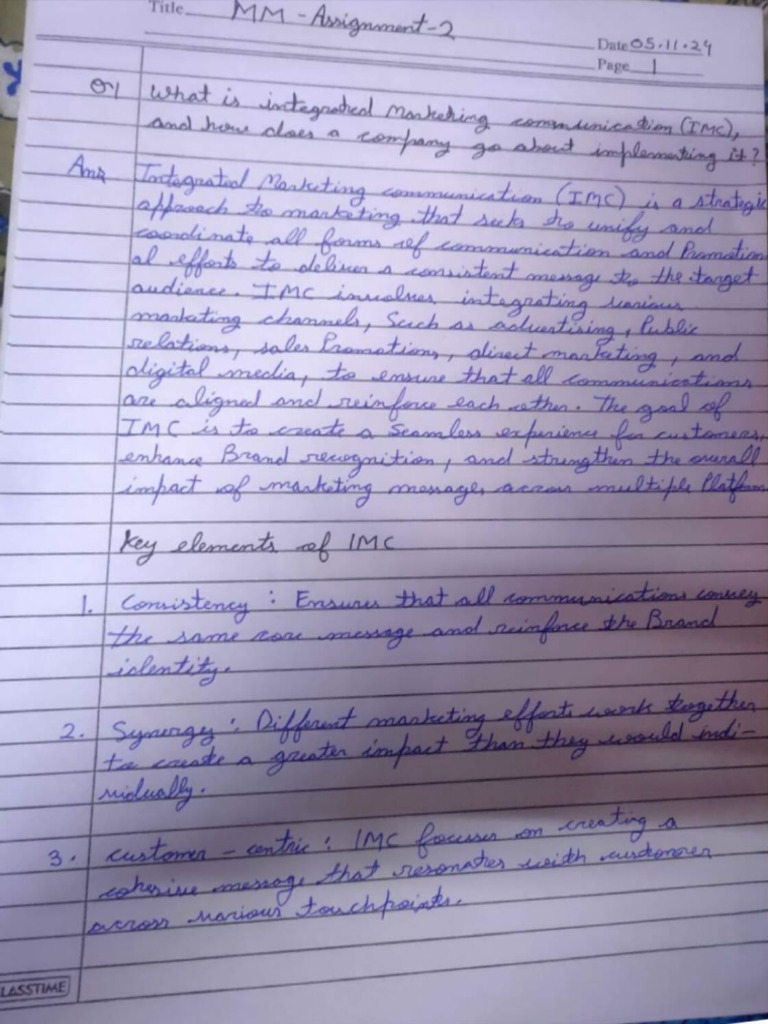 Title MM - Assignment-2
Date 05.11.24
Page 1
Q1 What is integrated Marketing communication (IMC),
and how does a company go about implementing it?
Ans Integrated Marketing communication (IMC) is a strategic
approach to marketing that seeks to unify and
coordinate all forms of communication and Promotion
al efforts to deliver a consistent message to the target
audience. IMC involves integrating various
marketing channels, Such as advertising, Public
relations, sales Promotions, direct marketing, and
digital media, to ensure that all communications
are aligned and reinforce each other. The goal of
IMC is to create a seamless experience for customers,
enhance Brand recognition, and strengthen the overall
impact of marketing messages across multiple Platform
Key elements of IMC
1. Consistency : Ensures that all communications convey
the same core message and reinforce the Brand
identity.
2. Synergy : Different marketing efforts work together
to create a greater impact than they would indi-
vidually.
3. customer - centric : IMC focuses on creating a
cohesive message that resonates with customer
across various touchpoints.
LASSTIME